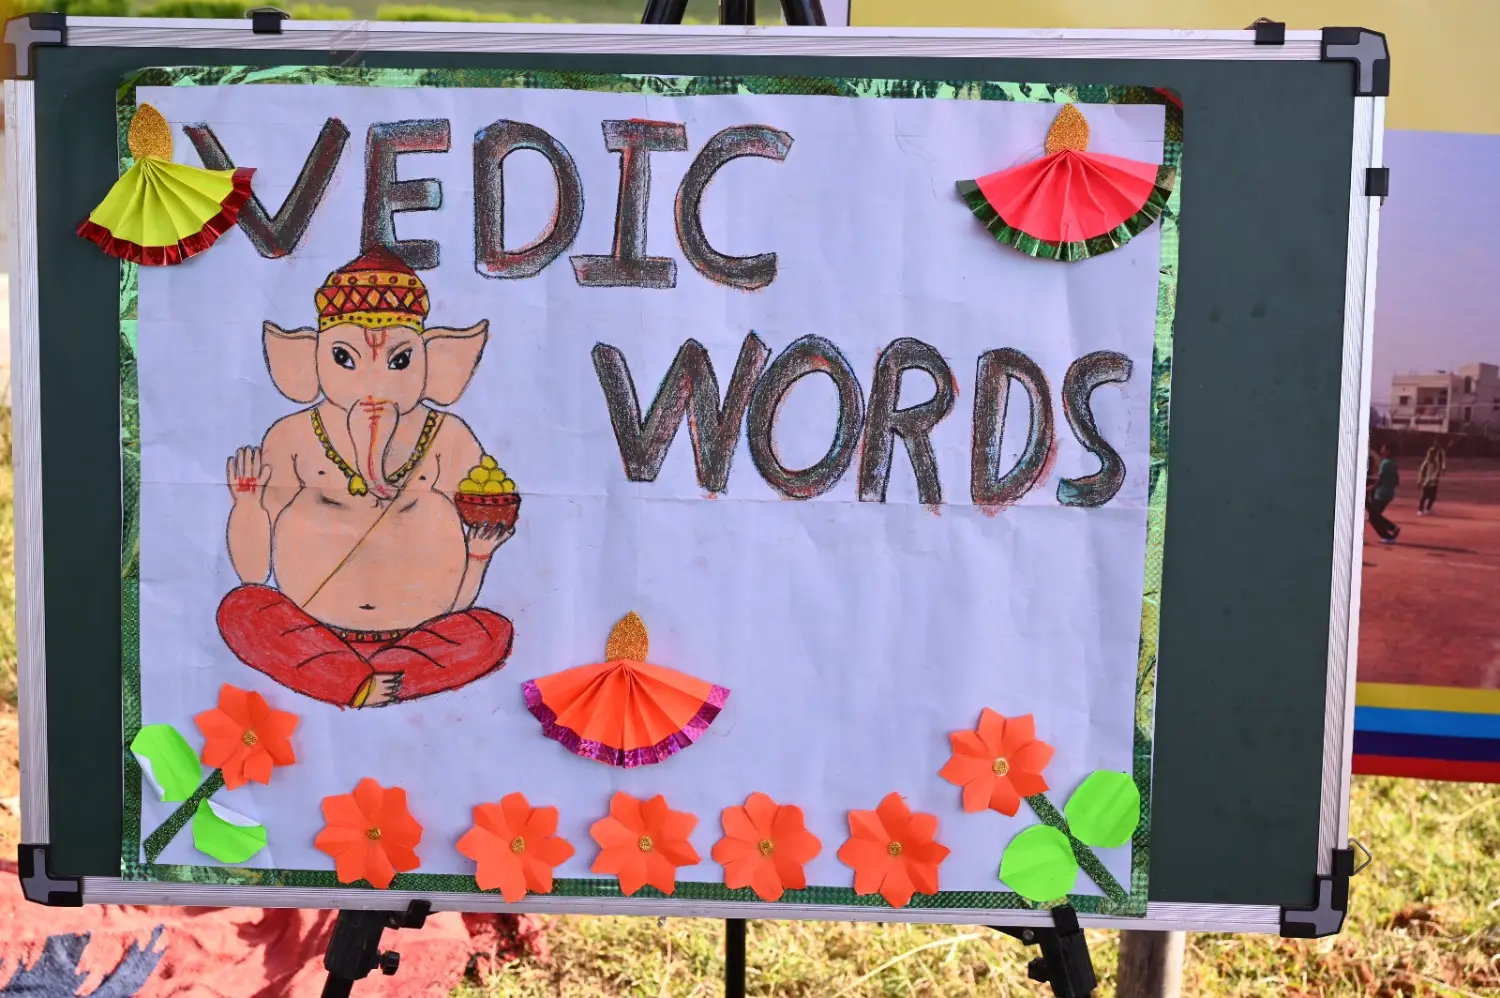 VEDIC
WORDS